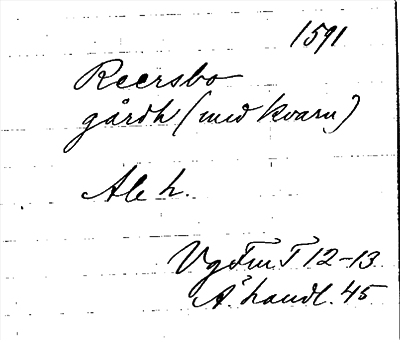 1591
Reersbo
gårdh (med kvarn)
Ale h.
VgFmT 12-13
A. handl. 45